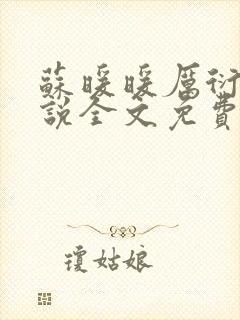 蘇暖暖厲衍
說全文免費
瓊姑娘